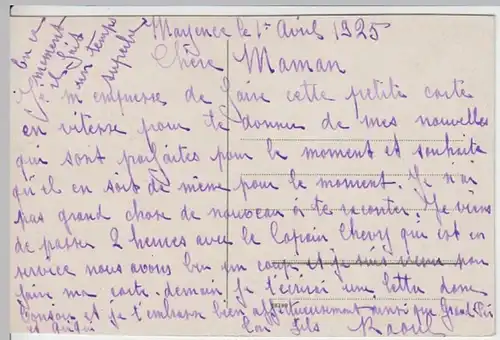 Mayence le 1er Avril 1925
Chère Maman
Je m'empresse de faire cette petite carte
en vitesse pour te donner de mes nouvelles
qui sont parfaites pour le moment et souhaite
qu'il en soit de même pour le moment. Je n'ai
pas grand chose de nouveau à te raconter. Je viens
de passer 2 heures avec le Copain Chevry qui est en
service nous avons bu un coup, et je suis venu pour
faire ma carte. demain je t'ecrirai une lettre donc
Bonsoir et je t'embrasse bien affectueusement ainsi que Grand Père
et
ton fils Raoul
en ce
moment
il fait
un temps
superbe